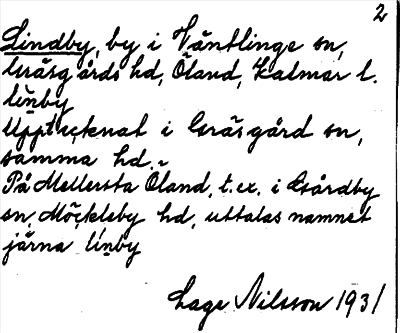 2
Lindby, by i Väntlinge sn,
Gräsgårds hd, Öland, Kalmar l.
li̯nby
Upptecknat i Gräsgård sn,
samma hd.
På Mellersta Öland, t.ex. i Gårdby
sn, Möckleby hd, uttalas namnet
järna línby
Lage Nilsson 1931